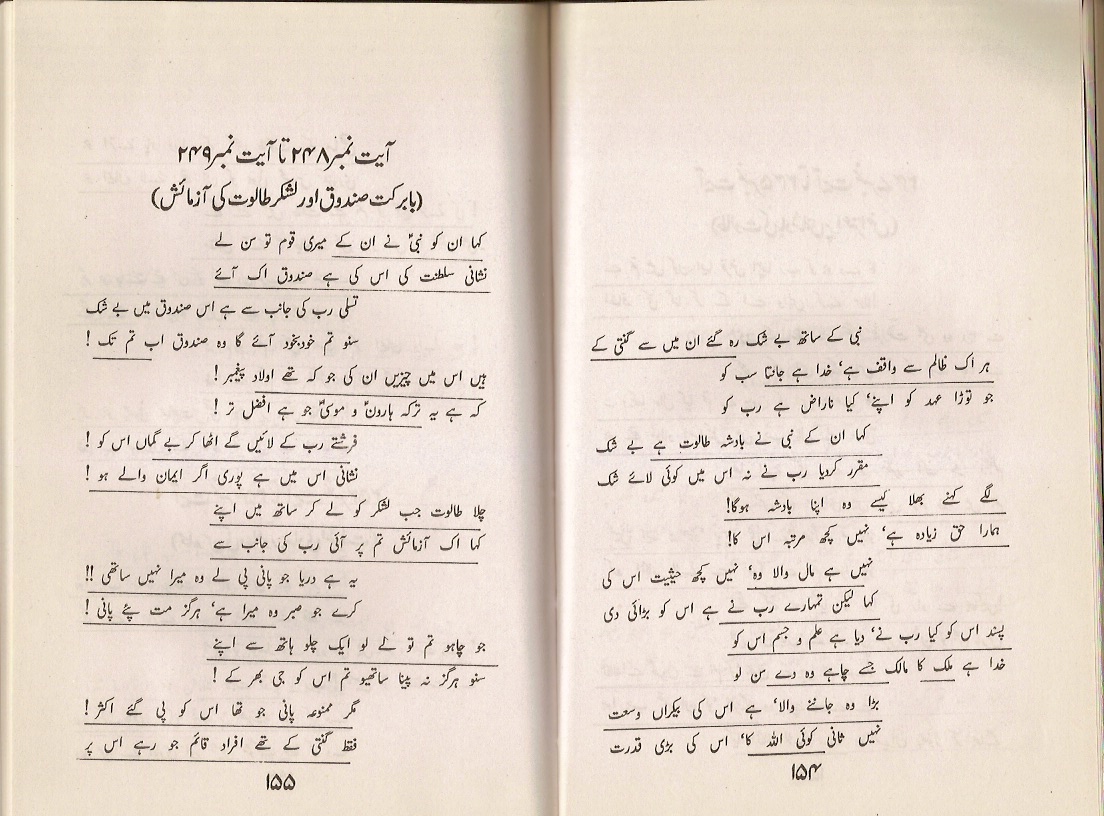 نبی کے ساتھ بے شک رہ گئے ان میں سے گنتی کے
ہر اک ظالم سے واقف ہے، خدا ہے جانتا سب کو
جو توڑا عہد کو اپنے، کیا ناراض ہے رب کو
کہا ان کے نبی نے بادشہ طالوت ہے بے شک
مقرر کردیا رب نے نہ اس میں کوئی لائے شک
لگے کہنے بھلا کیسے وہ اپنا بادشہ ہوگا!
ہمارا حق زیادہ ہے، نہیں کچھ مرتبہ اس کا!
نہیں ہے مال والا وہ، نہیں کچھ حیثیت اس کی
کہا لیکن تمہارے رب نے ہے اس کو بڑائی دی
پسند اس کو کیا رب نے، دیا ہے علم و جسم اس کو
خدا ہے ملک کا مالک جسے چاہے وہ دے سن لو
بڑا وہ جاننے والا، ہے اس کی بیکراں وسعت
نہیں ثانی کوئی اللہ کا، اس کی بڑی قدرت
۱۵۴
آیت نمبر ۲۴۸ تا آیت نمبر ۲۴۹
(بابرکت صندوق اور لشکر طالوت کی آزمائش)
کہا ان کو نبیؑ نے ان کے میری قوم تو سن لے
نشانی سلطنت کی اس کی ہے صندوق اک آئے
تسلی رب کی جانب سے ہے اس صندوق میں بے شک
سنو تم خودبخود آئے گا وہ صندوق اب تم تک!
ہیں اس میں چیزیں ان کی جو کہ تھے اولاد پیغمبر!
کہ ہے یہ ترکہ ہارونؑ و موسیٰؑ جو ہے افضل تر!
فرشتے رب کے لائیں گے اٹھا کر بے گماں اس کو!
نشانی اس میں ہے پوری اگر ایمان والے ہو!
چلا طالوت جب لشکر کو لے کر ساتھ میں اپنے
کہا اک آزمائش تم پر آئی رب کی جانب سے
یہ ہے دریا جو پانی پی لے وہ میرا نہیں ساتھی!!
کرے جو صبر وہ میرا ہے، ہرگز مت پئے پانی!
جو چاہو تم تو لے لو ایک چلو ہاتھ سے اپنے
سنو ہرگز نہ پینا ساتھیو تم اس کو جی بھر کے!
گر ممنوعہ پانی جو تھا اس کو پی گئے اکثر!
فقط گنتی کے تھے افراد قائم جو رہے اس پر
۱۵۵